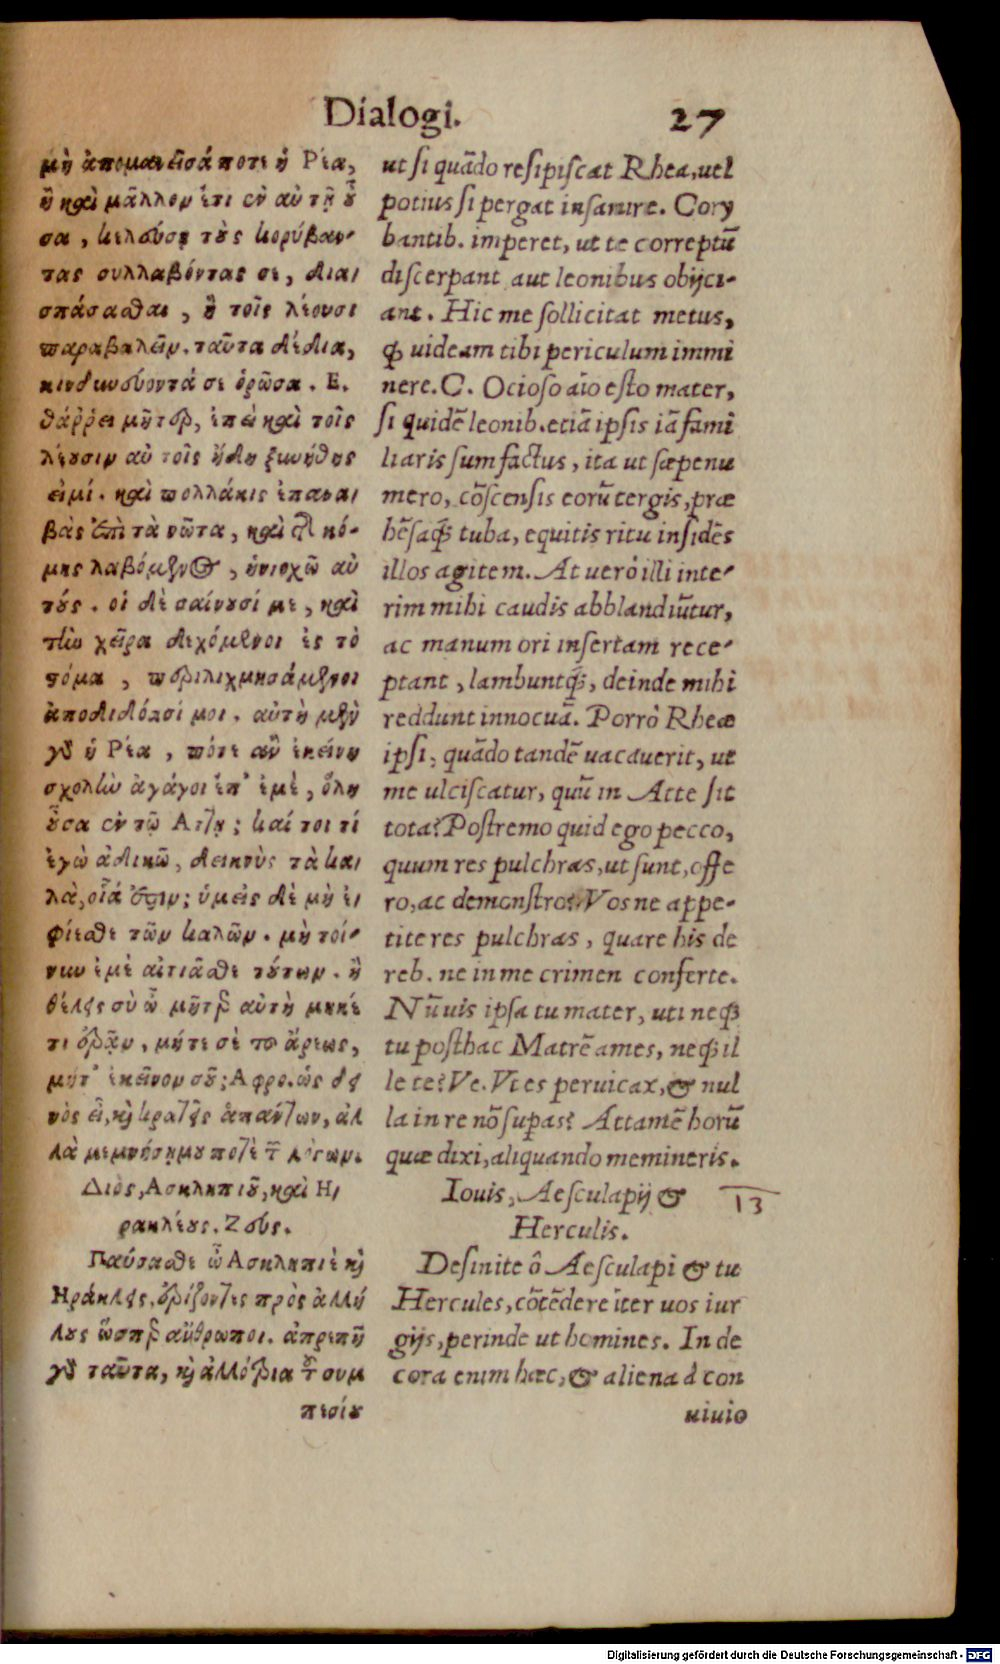 Dialogi. 27
μὴ ἀπομανεῖσά ποτε ἡ Ρέα,
ἢ καὶ μᾶλλον ἔτι ἐν αὑτῇ οὖ
σα, κελεύσῃ τοὺς κορύβαν-
τας συλλαβόντας σε, δια
σπάσασθαι, ἢ τοῖς λέουσι
παραβαλεῖν. ταῦτα δέδια,
κινδυνεύοντά σε ὁρῶσα. Ε.
θάρρει μῆτερ, ἐπεὶ καὶ τοῖς
λέουσιν αὐτοῖς ἤδη ξυνήθης
εἰμί. καὶ πολλάκις ἐπανα
βὰς ἐπὶ τὰ νῶτα, καὶ τῆς κό-
μης λαβόμενος, ἡνιοχῶ αὐ
τούς. οἱ δὲ σαίνουσί με, καὶ
τὴν χεῖρα δεχόμενοι ἐς τὸ
στόμα, περιλιχμησάμενοι
ἀποδιδόασί μοι. αὐτὴ μὲν
γὰρ ἡ Ρέα, πότε ἂν ἐκείνη
σχολὴν ἀγάγοι ἐπ' ἐμὲ, ὅλη
οὖσα ἐν τῷ Αττῃ; καί τοι τί
ἐγὼ ἀδικῶ, δεικνὺς τὰ κα
λὰ, οἷά ἐστιν; ὑμεῖς δὲ μὴ ἐ
φίεσθε τῶν καλῶν. μὴ τοί-
νυν ἐμὲ αἰτιᾶσθε τούτων. ἢ
θέλεις σὺ ὦ μῆτερ αὐτὴ μηκέ
τι ἐρᾷν, μήτε σὲ τοῦ ἄρεως,
μήτ' ἐκεῖνον σοῦ; Αφρο. ὡς δει
νὸς εἶ, καὶ κρατεῖς ἁπάντων, ἀλ
λὰ μεμνήσῃ μου ποτὲ τῶν λόγων.
Διὸς, Ασκληπιοῦ, καὶ Η
ρακλέους. Ζεύς.
Παύσασθε ὦ Ασκληπιὲ καὶ
Ηράκλεις, ἐρίζοντες πρὸς ἀλλή
λους ὥσπερ ἄνθρωποι. ἀπρεπῆ
γὰρ ταῦτα, καὶ ἀλλότρια τοῦ συμ
ποσίου
ut si quãdo resipiscat Rhea, uel
potius si pergat insanire. Cory
bantib. imperet, ut te correptũ
discerpant aut leonibus obijci-
ant. Hic me sollicitat metus,
ꝙ uideam tibi periculum immi
nere. C. Ocioso aĩo esto mater,
si quidẽ leonib. etiã ipsis iã fami
liaris sum factus, ita ut sæpenu
mero, cõscensis eorũ tergis, præ
hẽsaq́; iuba, equitis ritu insidẽs
illos agitem. At uerò illi inte-
rim mihi caudis abblandiũtur,
ac manum ori insertam rece-
ptant, lambuntq́;, deinde mihi
reddunt innocuã. Porrò Rheæ
ipsi, quãdo tandẽ uacauerit, ut
me ulciscatur, quũ in Atte sit
tota? Postremo quid ego pecco,
quum res pulchras, ut sunt, offe
ro, ac demonstro? Vos ne appe-
tite res pulchras, quare his de
reb. ne in me crimen conferte.
Nũ uis ipsa tu mater, uti neq́;
tu posthac Matrẽ ames, neq́; il
le te? Ve. Vt es peruicax, & nul
la in re nõ supas? Attamẽ horũ
quæ dixi, aliquando memineris.
Iouis, Aesculapij &
Herculis.
13
Desinite ô Aesculapi & tu
Hercules, cõtẽdere iter uos iur
gijs, perinde ut homines. In de
cora enim hæc, & aliena à con
uiuio
Digitalisierung gefördert durch die Deutsche Forschungsgemeinschaft - DFG